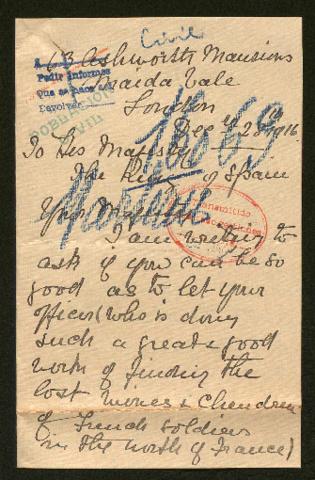 Civil
63 Ashworth Mansions
Pedir informes
Que se hace así
Devolver
Maida Vale
London
POBLACION
CIVIL
Decr 28th 1916
To His Majesty
The King of Spain
Your Majesty
I am writing to
ask if you can be so
good as to let your
officer (who is doing
such a great & good
work of finding the
lost wives & children
of French soldiers
in the north of France)